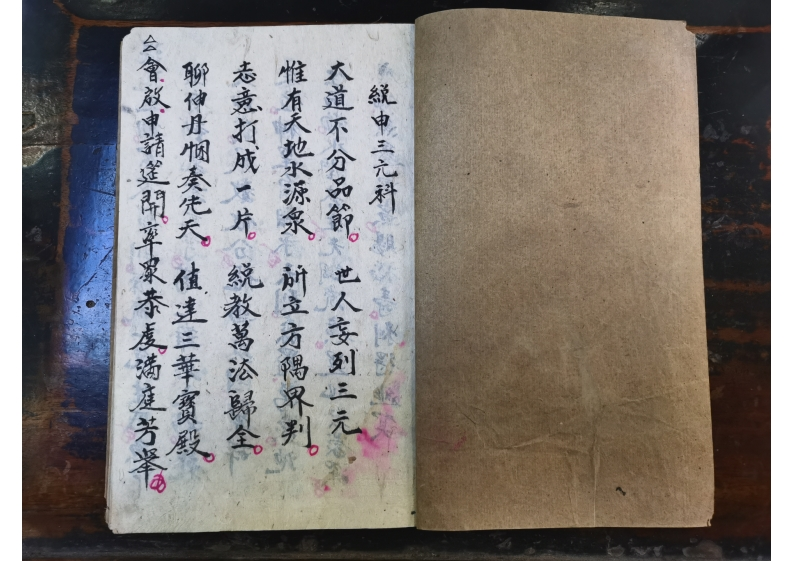 統申三元科
大道不分品節 世人妄列三元
惟有天地水源泉 所立方隅界判
志意打成一片 統教萬法歸全
聊伸丹悃奏先天 值達三華寶殿
仝會啟申請筵開率眾恭虔滿庭芳舉